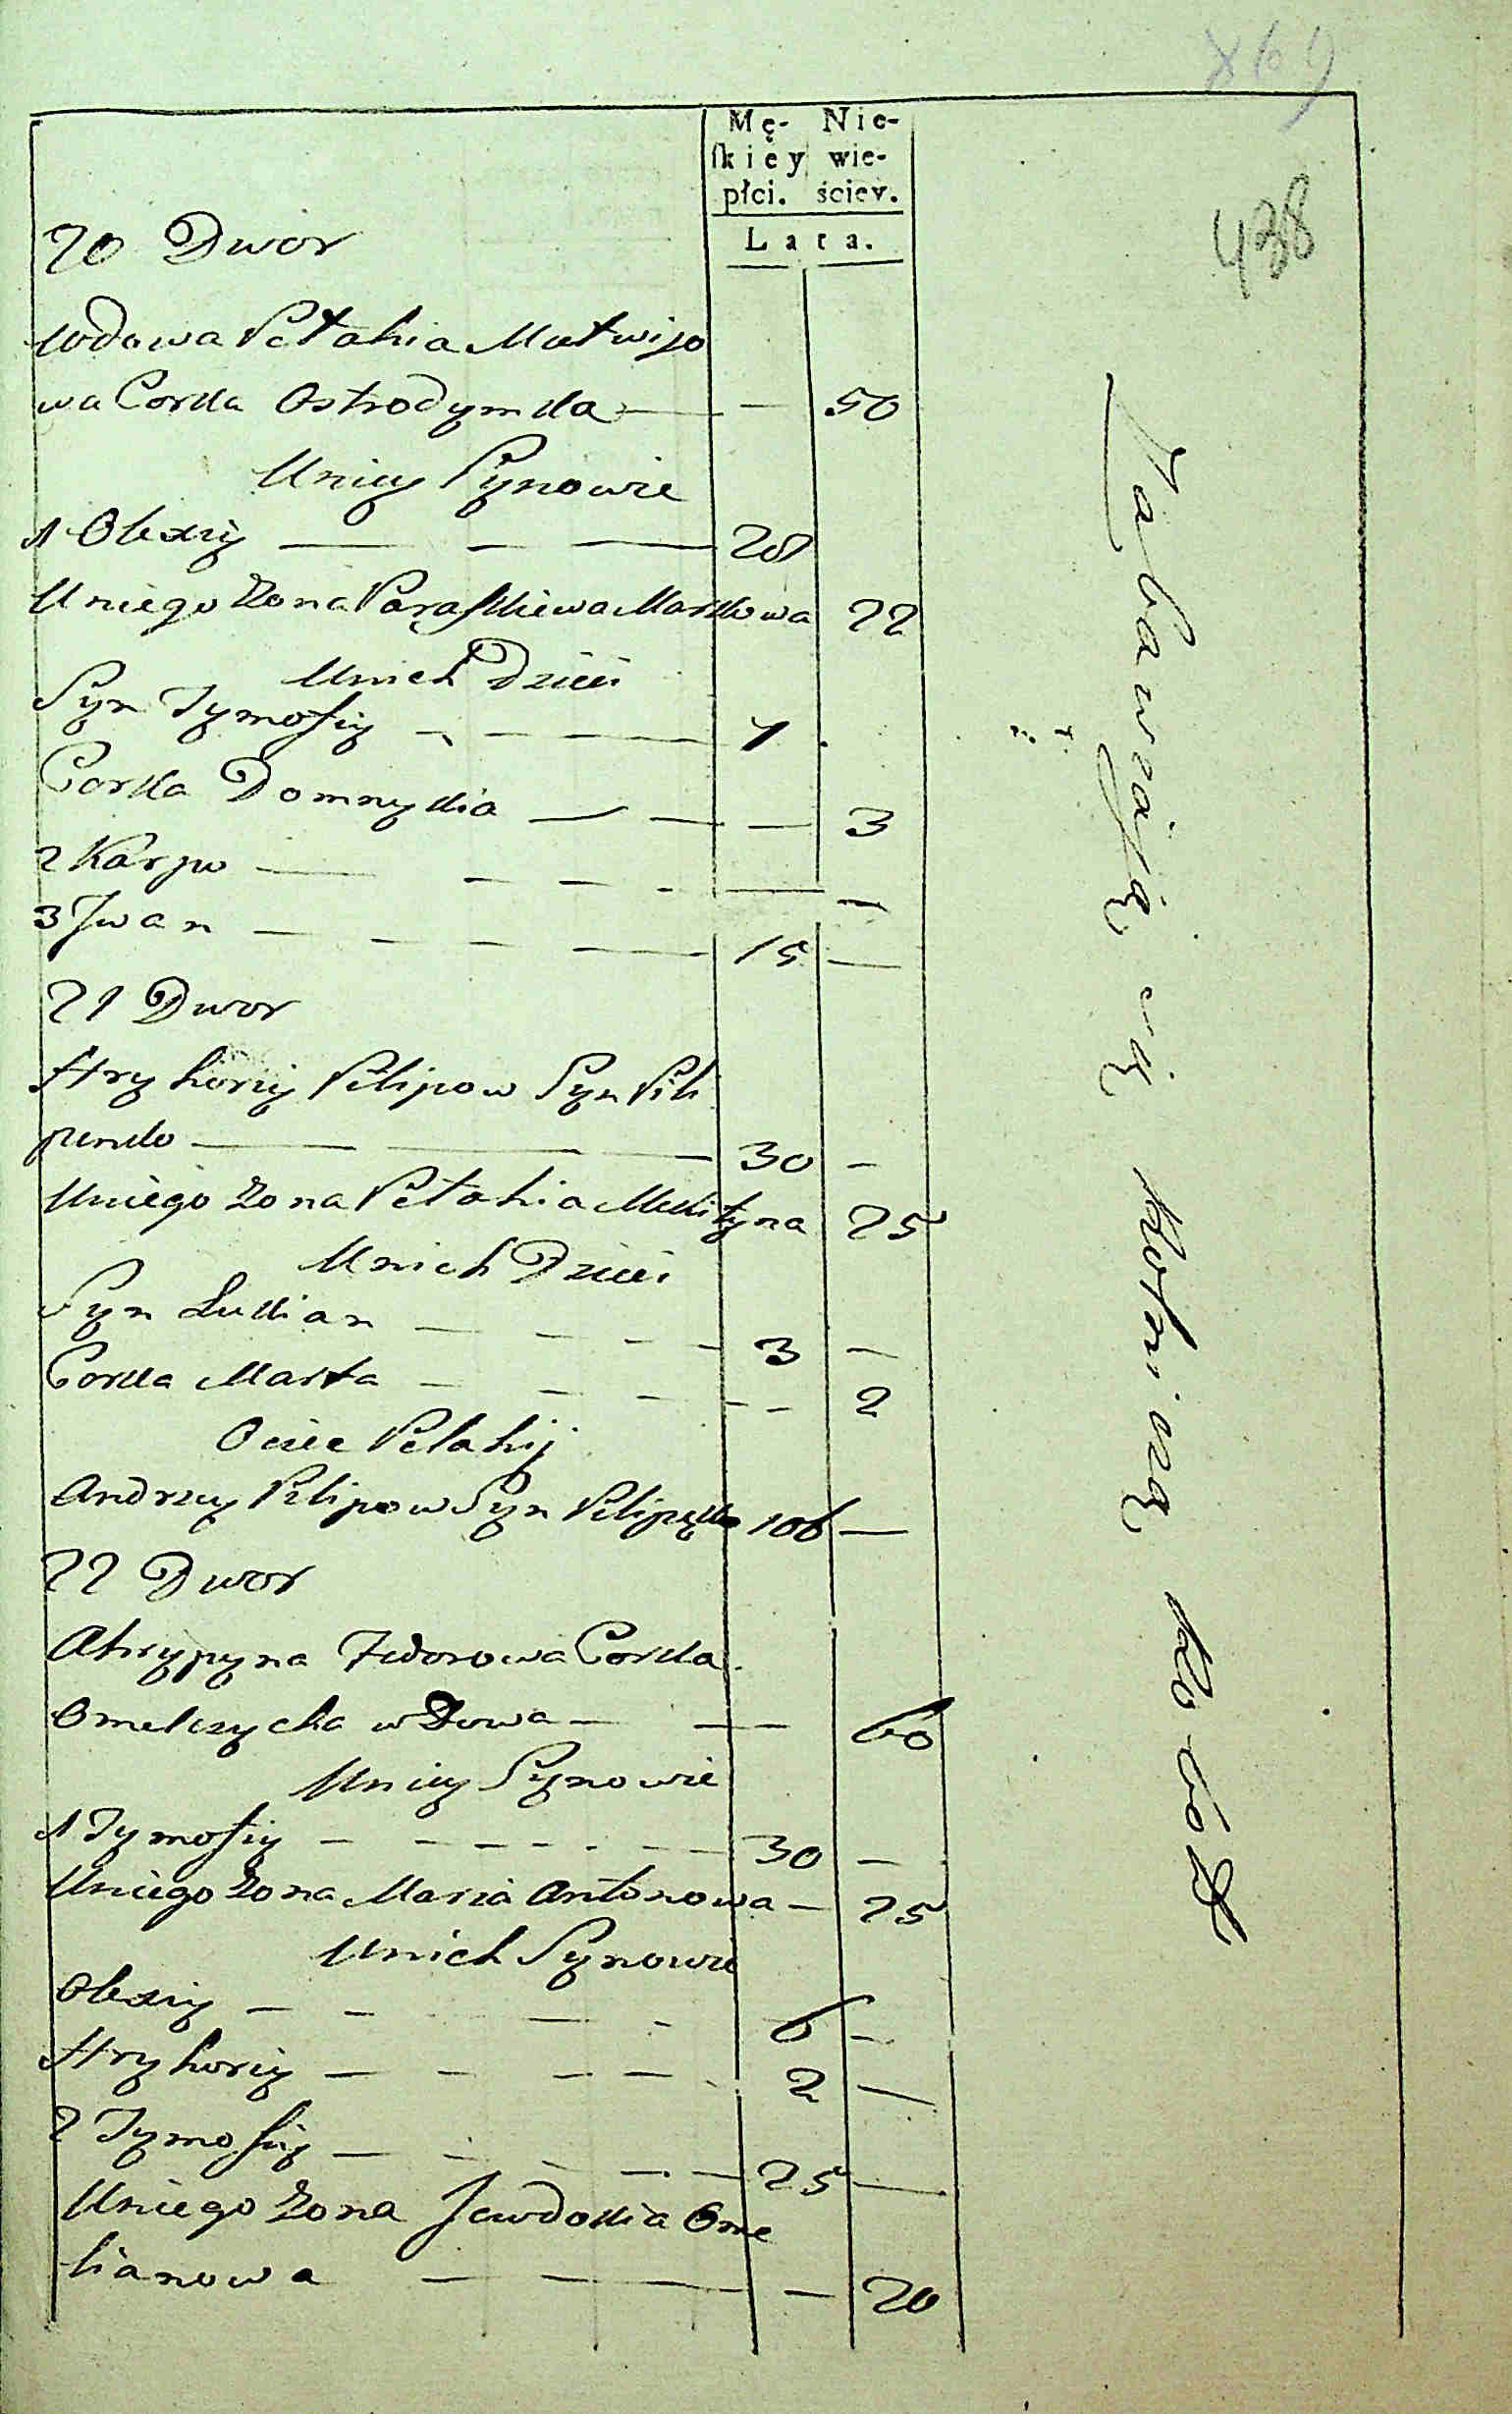 869
438
Mę- Nie-
ſkiey wie-
płci. ściey.
Lata.
20 Dwor
Wdowa Pełahia Matwijo
wa Corka Ostrodymka — — 50
Uniey Synowie
1 Olexiy — — — 28
Uniego Zona Paraskiewa Markowa 22
Unich Dzieci
Syn Tymofiy — — — 1
Corka Domnykia — — — 3
2 Karpo — — — — — —
3 Jwan — — — — 15 —
21 Dwor
Hryhoriy Pilipow Syn Pili
penko — — — 30 —
Uniego Zona Pełahia Mikityna 25
Unich Dzieci
Syn Lukian — — — — 3 —
Corka Marta — — — — — 2
Ociec Pelahij
Andrzey Pilipow Syn Pilipęko 106 —
22 Dwor
Ahrypyna Fedorowa Corka
Omelczycha wdowa — — — 60
Uniey Synowie
1 Tymofiy — — — — — — 30 —
Uniego Zona Maria Antonowa — 25
Unich Synowie
Olexiy — — — — 6 —
Hryhoriy — — — — 2 —
2 Tymofiy — — — — — 25 —
Uniego Zona Jewdokia Ome
lianowa — — — 20
Zabawiaią się Rolniczą Robotą